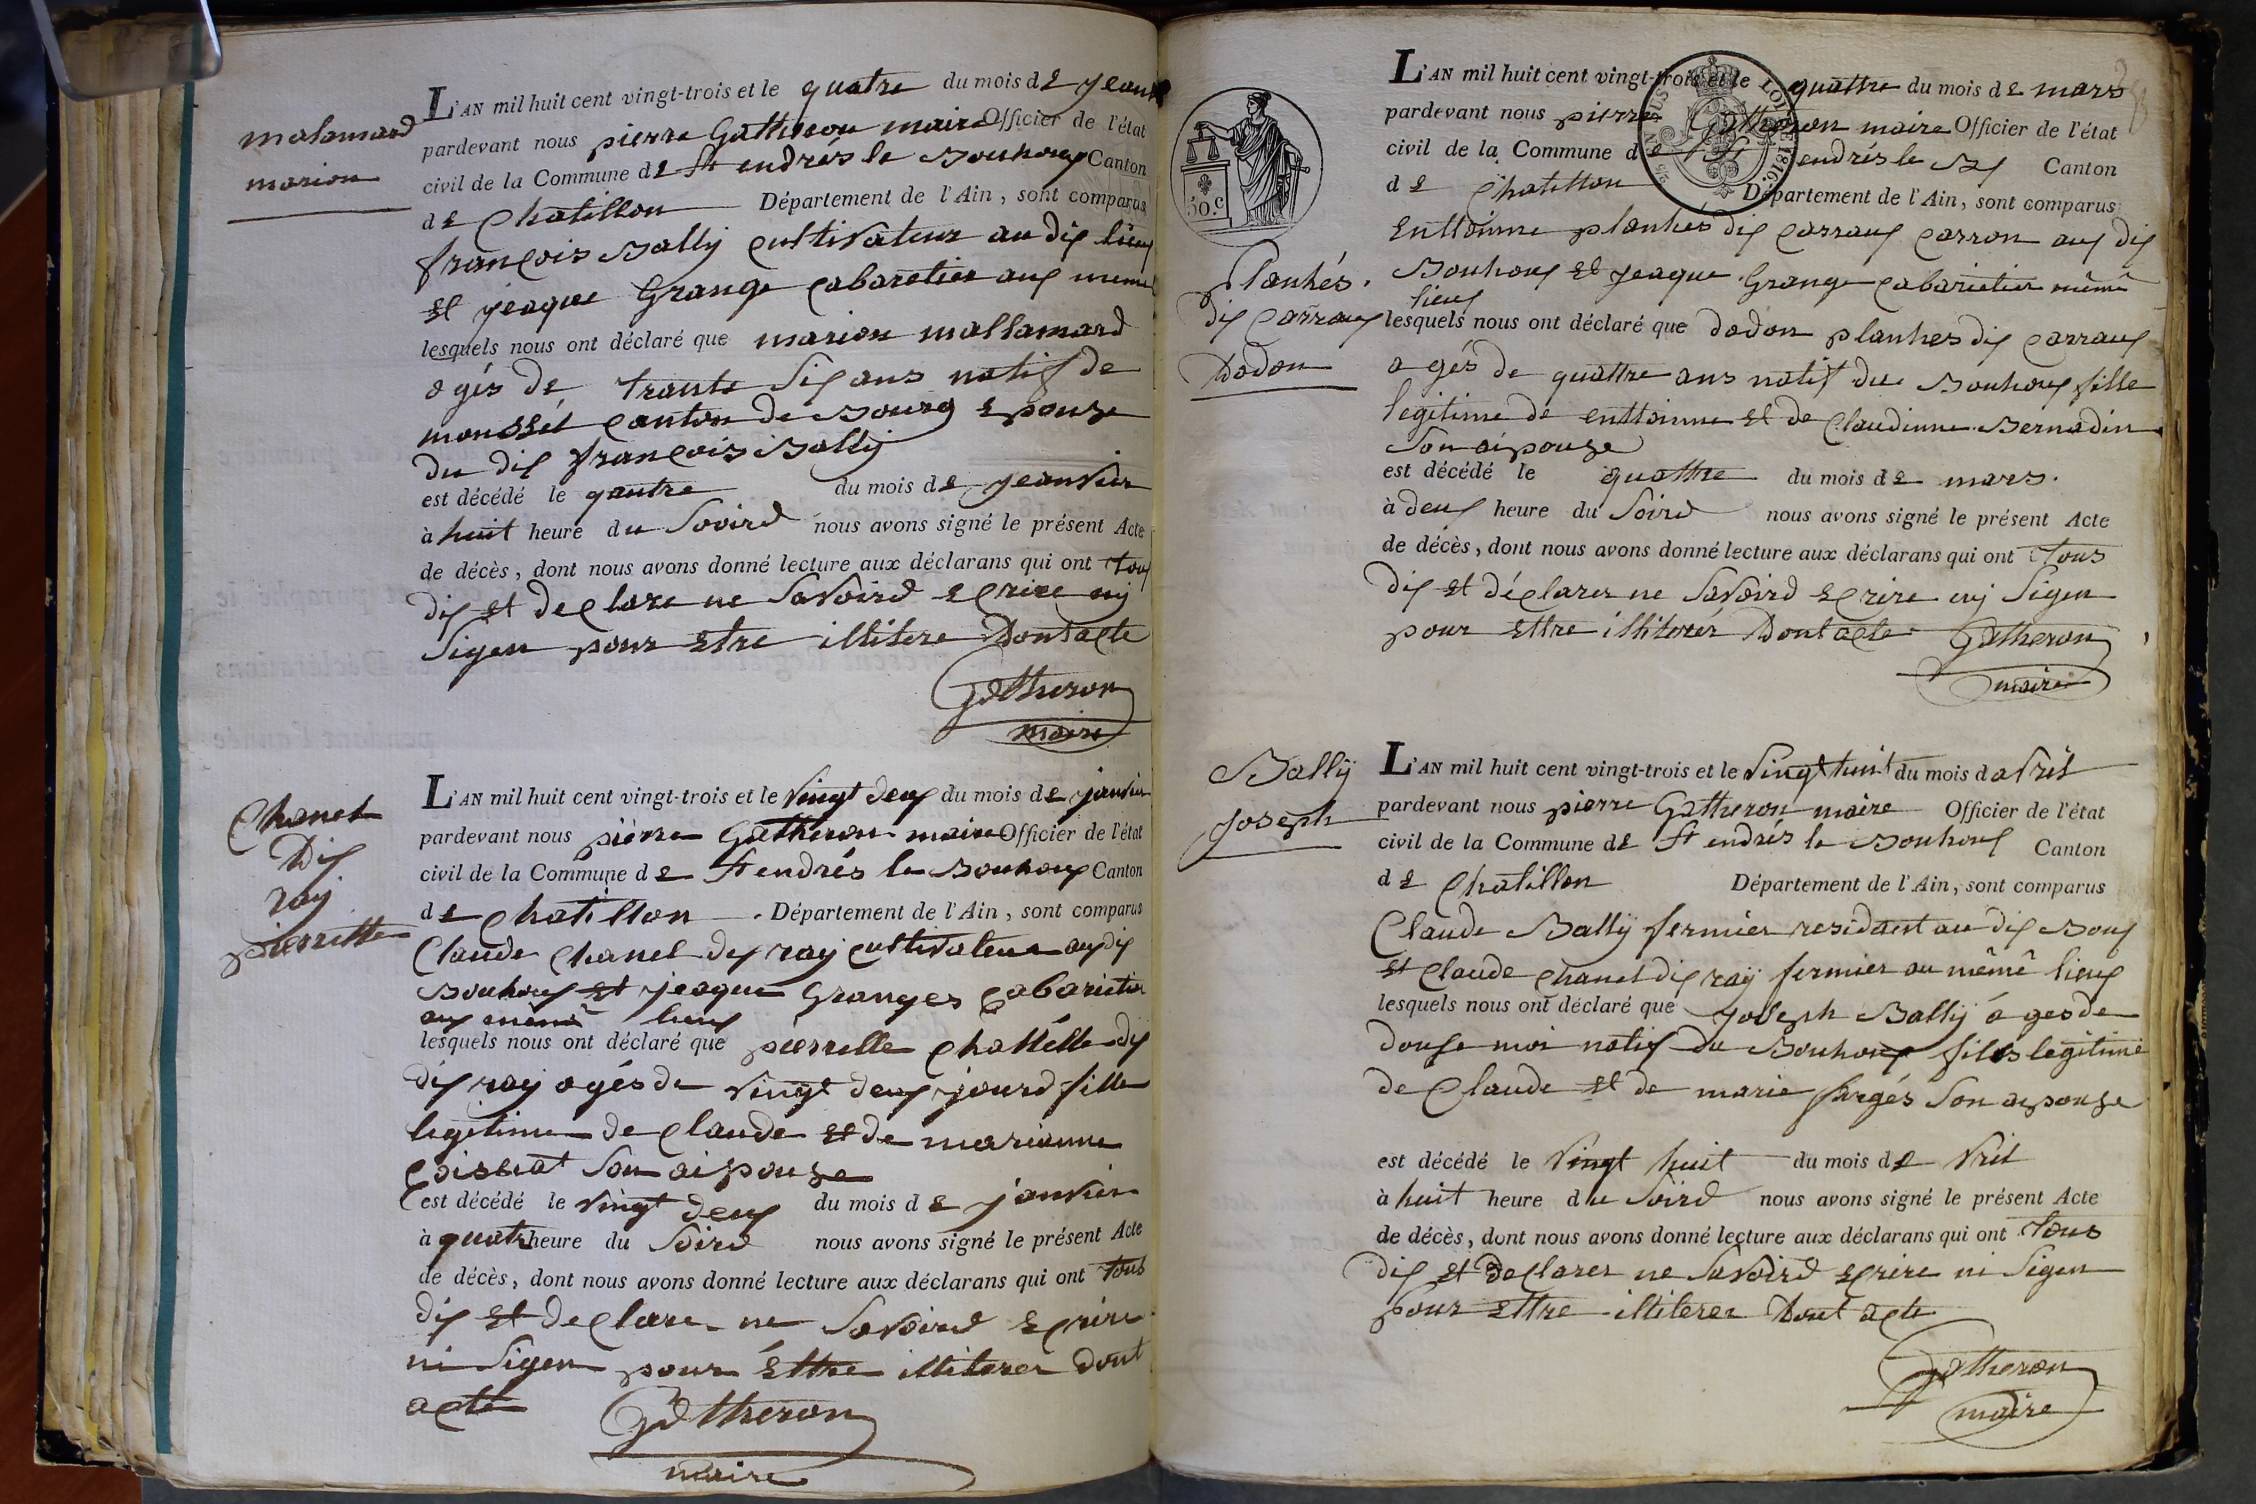 malamard
marion
L'AN mil huit cent vingt-trois et le quatre du mois de jeanv
pardevant nous pierre Gatheron maire Officier de l'état
civil de la Commune de St endrés le Bouhoux Canton
de Chatillon Département de l'Ain, sont comparus
françois Bally cultivateur au dis lieux
et jeaque Grange cabaretier aux meme
lesquels nous ont déclaré que marion mallamard
agés de trante six ans natif de
monssét canton de Bourg epouze
du dis françois Bally
est décédé le qautre du mois de jeanvier
à huit heure du Sovird nous avons signé le présent Acte
de décès, dont nous avons donné lecture aux déclarans qui ont tous
dis et declare ne Savoird ecrire ny
Signer pour etre illitere Dont acte
Gatheron
maire
Chanel
Dis
ray
pierrette
L'AN mil huit cent vingt-trois et le vingt deux du mois de janvier
pardevant nous pierre Gatheron maire Officier de l'état
civil de la Commune de St endrés le Bouhoux Canton
de Chatillon Département de l'Ain, sont comparus
Claude Chanel dis ray cultivateur aux dis
Bouhoux et jeaque Granges cabarietier
aux même lieux
lesquels nous ont déclaré que pierrette dis
dis ray agés de vingt deux jourd fille
legitime de Claude et de marianne
Son aipouze
est décédé le vingt deux du mois de janvier
à quatre heure du Soird nous avons signé le présent Acte
de décès, dont nous avons donné lecture aux déclarans qui ont tous
dis et declare ne Savoird ecrire
ni Signer pour ettre illiterer dont
acte Gatheron
maire
NUS LOI DE 1816.
50.c
L'AN mil huit cent vingt-trois et le quattre du mois de mars
pardevant nous pierre Gatheron maire Officier de l'état
civil de la Commune de St endrés le B Canton
de Chatillon Département de l'Ain, sont comparus
enttoinne planhés dis carraux carron aux dis
Bouhoux et jeaque Grange cabarietier même
lieux
Planhés.
dis Carraux
Dodon
lesquels nous ont déclaré que dodon planhes dis carraux
agés de quattre ans natif du Bouhoux fille
legitime de enttoinne et de Claudinne Bernadin
Son aipouze
est décédé le quattre du mois de mars.
à deux heure du Soird nous avons signé le présent Acte
de décès, dont nous avons donné lecture aux déclarans qui ont tous
dis et déclarer ne Savoird ecrire ny Signer
pour ettre illiterér Dont acte Gatheron
maire
Bally
joseph
L'AN mil huit cent vingt-trois et le vingt huit du mois d avril
pardevant nous pierre Gatheron maire Officier de l'état
civil de la Commune de St endrés le Bouhoux Canton
de Chatillon Département de l'Ain, sont comparus
Claude Bally fermier residant au dis Boux
et Claude Chanel dis ray fermier au même lieux
lesquels nous ont déclaré que joseph Bally agés de
douse moi natif du Bouhoux fils legitime
de Claude et de marie Son aipouze
est décédé le vingt huit du mois de vril
à huit heure du Soird nous avons signé le présent Acte
de décès, dont nous avons donné lecture aux déclarans qui ont tous
dis et declarer ne Savoird ecrire ni Signer
pour ettre illiterer Dont acte
Gatheron
maire